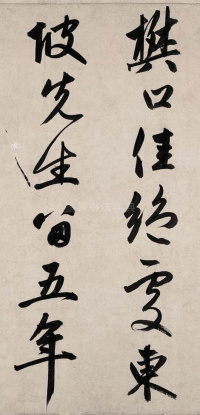 樊口佳絕處東
坡先生留五年